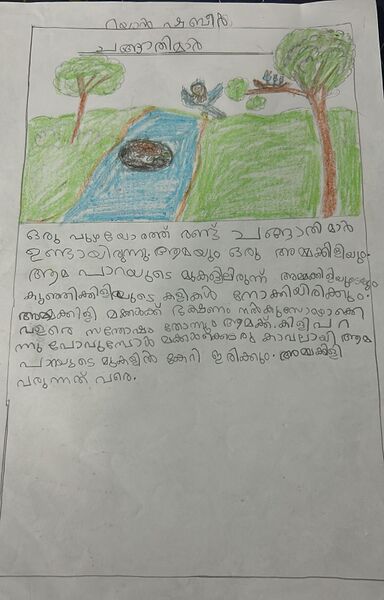 റയാൻ ഷബീർ
ചങ്ങാതിമാർ
ഒരു പുഴയോരത്ത് രണ്ട് ചങ്ങാതിമാർ
ഉണ്ടായിരുന്നു. ആമയും ഒരു അമ്മക്കിളിയും.
ആമ പാറയുടെ മുകളിലിരുന്ന് അമ്മക്കിളിയുടെയും
കുഞ്ഞിക്കിളിയുടെ കളികൾ നോക്കിയിരിക്കും.
അമ്മക്കിളി മക്കൾക്ക് ഭക്ഷണം നൽകുമ്പോഴൊക്കെ
വളരെ സന്തോഷം തോന്നും ആമക്ക്. കിളി പറ
ന്നു പോവുമ്പോൾ മക്കൾക്കൊരു കാവലായി ആമ
പാറയുടെ മുകളിൽ കേറി ഇരിക്കും. അമ്മക്കിളി
വരുന്നത് വരെ.